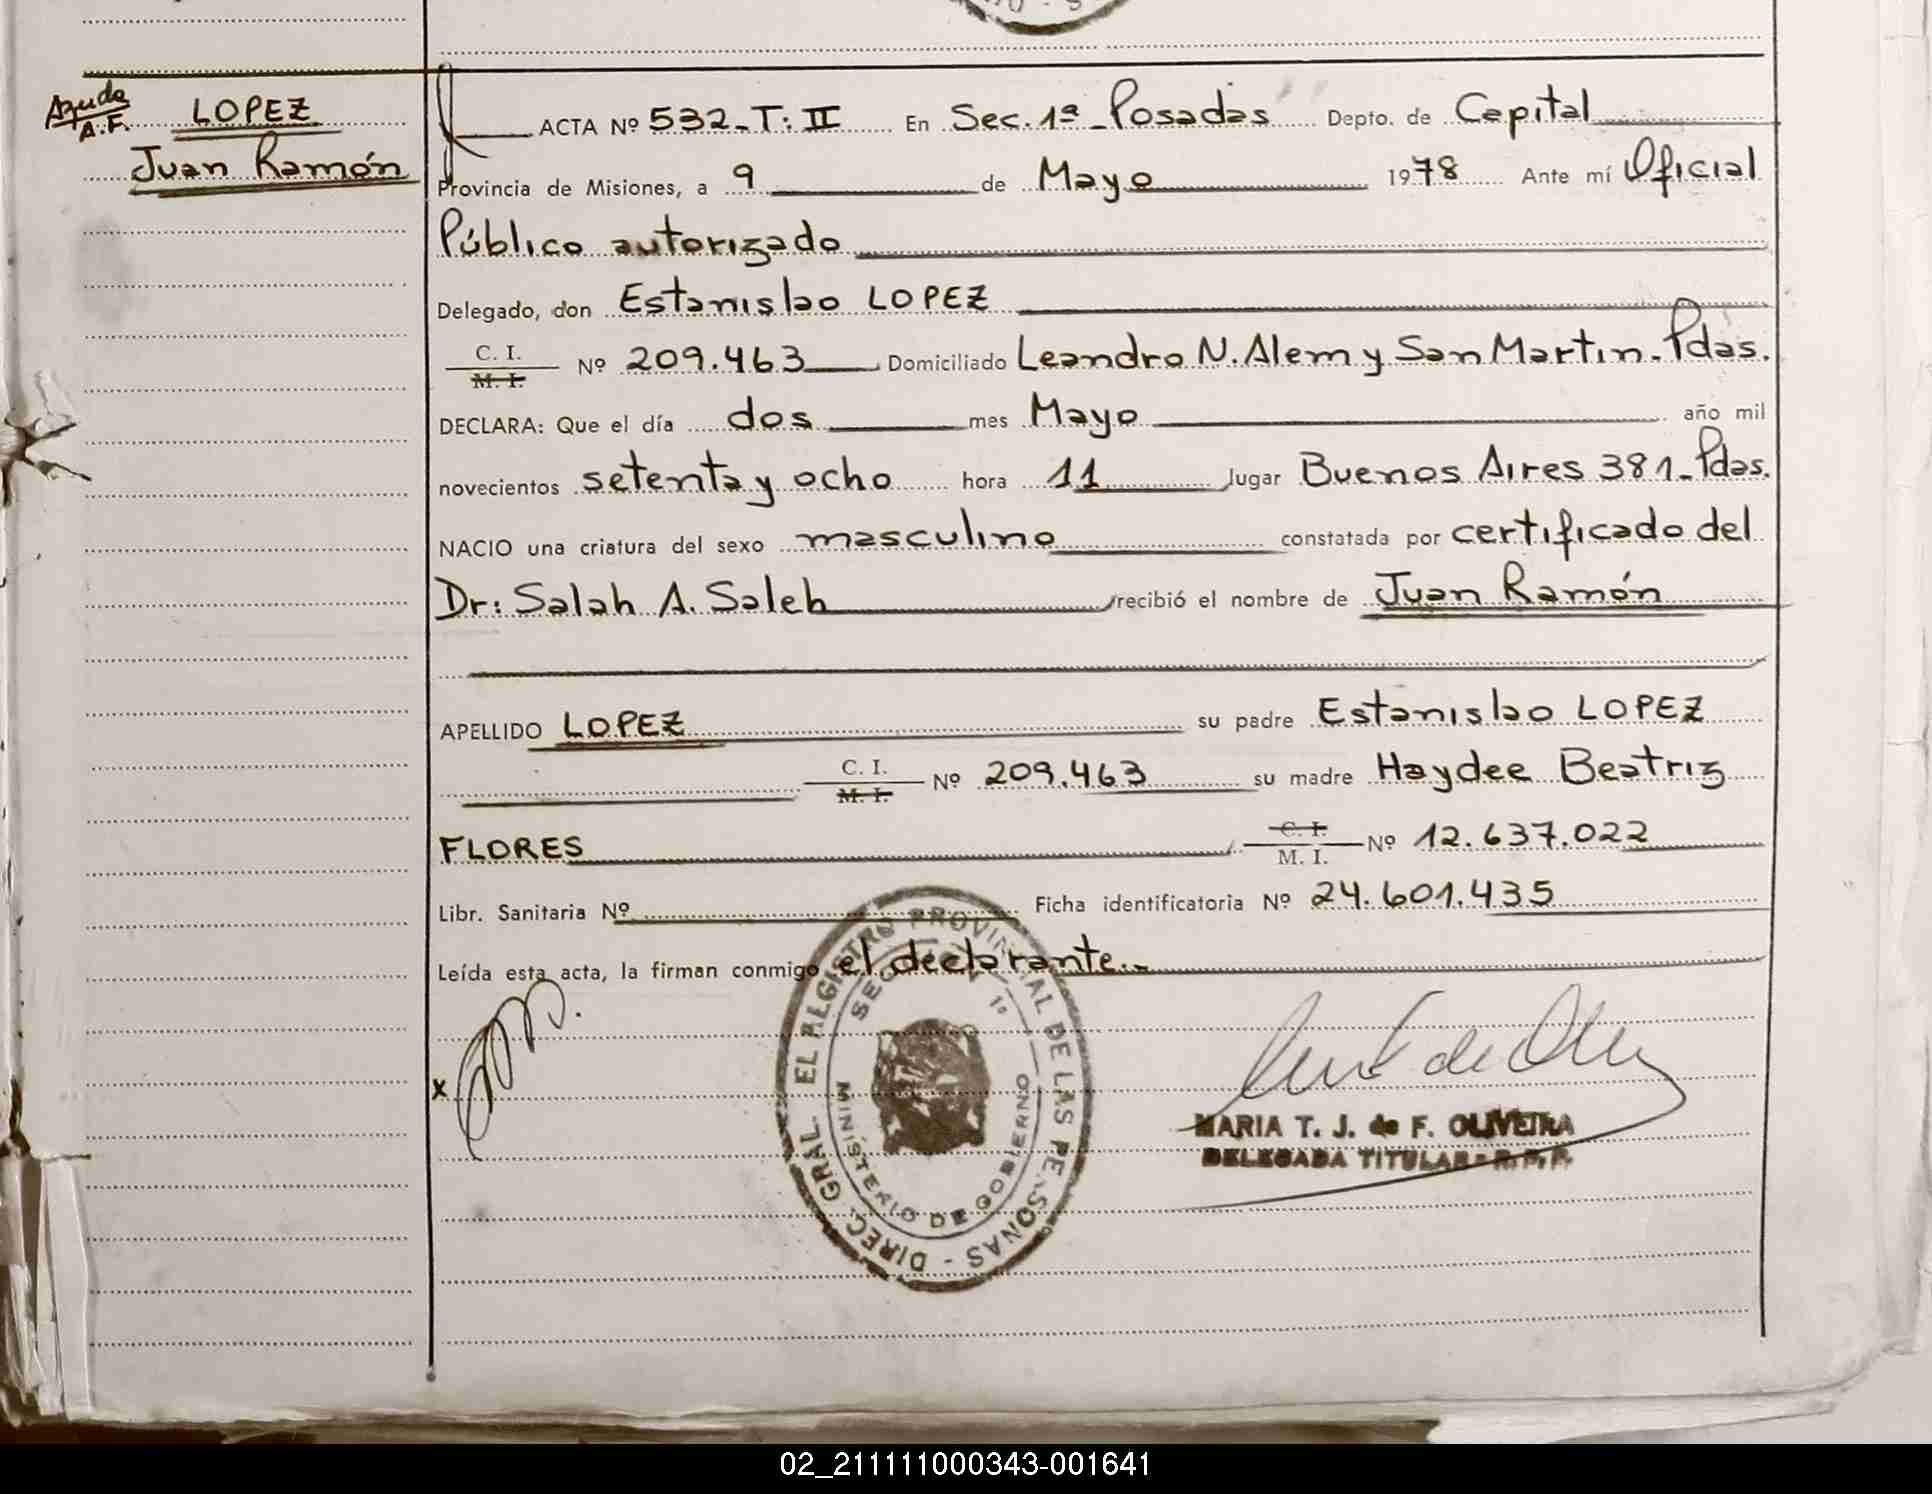 Ayuda
A.F.
LOPEZ
Juan Ramón
ACTA Nº 532-T: II En Sec. 1ª - Posadas Depto. de Capital
Provincia de Misiones, a 9 de Mayo 1978 Ante mí Oficial
Público autorizado
Delegado, don Estanislao LOPEZ
C. I.
M. I. Nº 209.463 Domiciliado Leandro N. Alem y San Martin - Pdas.
DECLARA: Que el día dos mes Mayo año mil
novecientos setenta y ocho hora 11 lugar Buenos Aires 381 - Pdas.
NACIO una criatura del sexo masculino constatada por certificado del
Dr: Salah A. Saleh recibió el nombre de Juan Ramón
APELLIDO LOPEZ su padre Estanislao LOPEZ
C. I.
M. I. Nº 209.463 su madre Haydee Beatriz
FLORES C. I.
M. I. Nº 12.637.022
Libr. Sanitaria Nº Ficha identificatoria Nº 24.601.435
Leída esta acta, la firman conmigo el declarante.-
x
DIREC. GRAL. EL REGISTRO PROVINCIAL DE LAS PERSONAS -
SECC 1º
MINISTERIO DE GOBIERNO
MARIA T. J. de F. OLIVEIRA
DELEGADA TITULAR - R. P. P.
02_211111000343-001641